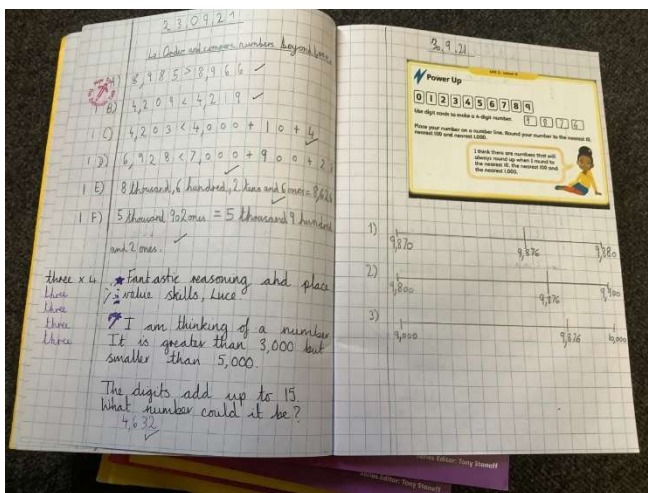 23.09.21
Lo: Order and compare numbers beyond
A) 8,985 > 8,966 ✓
1 B) 4,209 < 4,219 ✓
1 C) 4,203 < 4,000 + 10 + 4 ✓
1 D) 6,928 < 7,000 + 900 + 2
1 E) 8 thousand, 6 hundred, 2 tens and 6 ones = 8,626
1 F) 5 thousand 902 ones = 5 thousand 9 hundred
and 2 ones. ✓
three x 4
three
three
three
three
Fantastic reasoning and place
value skills, Luce
I am thinking of a number
It is greater than 3,000 but
smaller than 5,000.
The digits add up to 15.
What number could it be?
4,632 ✓
30.9.21
Power Up
0 1 2 3 4 5 6 7 8 9
Use digit cards to make a 4-digit number.
9 8 7 6
Place your number on a number line. Round your number to the nearest 10,
nearest 100 and nearest 1,000.
I think there are numbers that will
always round up when I round to
the nearest 10, the nearest 100 and
the nearest 1,000.
1)
9,870 9,876 9,880
2)
9,800 9,876 9,900
3)
9,000 9,876 10,000
Series Editor: Tony Staneff
Series Editor: Tony Staneff